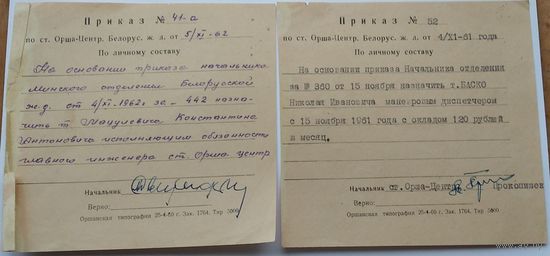 Приказ № 41-а
по ст. Орша-Центр. Белорус. ж. д. от 5/XI-62
По личному составу
На основании приказа начальника
Минского отделения Белорусской
ж.д. от 4/XI-1962г за -442 назна-
чить т. Мацулевича Константина
Антоновича исполняющим обязанности
главного инженера ст. Орша центр
Начальник
Верно:
Оршанская типография 25-4-60 г. Зак. 1764. Тир 5000
Приказ № 52
по ст. Орша-Центр. Белорус. ж. д. от 4/XI-61 года
По личному составу
На основании приказа Начальника отделения
за № 360 от 15 ноября назначить т.БАСКО
Николая Ивановича маневровым диспетчером
с 15 ноября 1961 года с окладом 120 рублей
в месяц.
Начальник ст.Орша-Центр Прокопинек
Верно:
Оршанская типография 25-4-60 г. Зак. 1764. Тир 5000